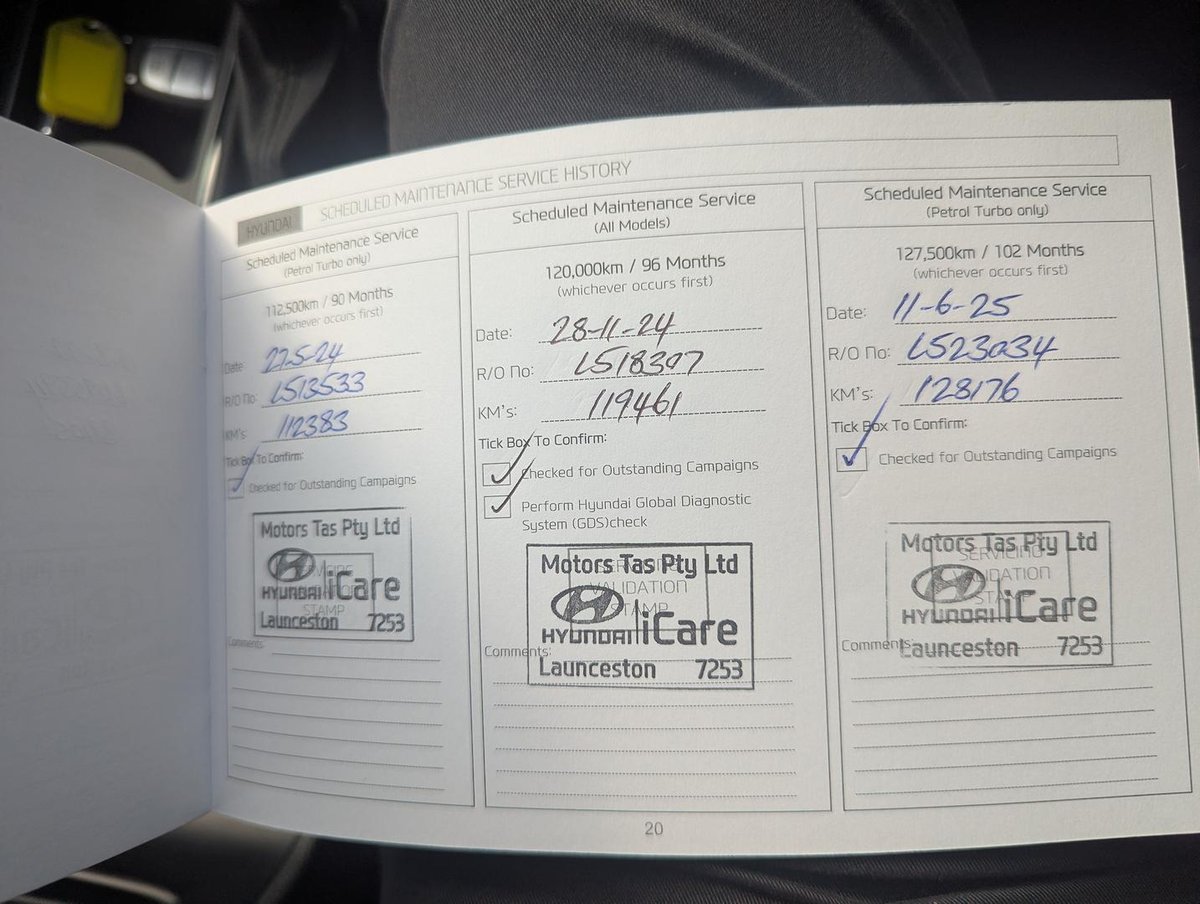 HYUNDAI
SCHEDULED MAINTENANCE SERVICE HISTORY
Scheduled Maintenance Service
(Petrol Turbo only)
112,500km / 90 Months
(whichever occurs first)
Date 22-5-24
R/O No: LS13533
KM's 112383
Tick Box To Confirm:
Checked for Outstanding Campaigns
Motors Tas Pty Ltd
STAMP
HYUNDAI iCare
Launceston 7253
Comments:
Scheduled Maintenance Service
(All Models)
120,000km / 96 Months
(whichever occurs first)
Date: 28-11-24
R/O No: LS18307
KM's: 119461
Tick Box To Confirm:
Checked for Outstanding Campaigns
Perform Hyundai Global Diagnostic
System (GDS)check
Motors Tas Pty Ltd
VALIDATION
STAMP
HYUNDAI iCare
Comments:
Launceston 7253
Scheduled Maintenance Service
(Petrol Turbo only)
127,500km / 102 Months
(whichever occurs first)
Date: 11-6-25
R/O No: LS23034
KM's: 128176
Tick Box To Confirm:
Checked for Outstanding Campaigns
Motors Tas Pty Ltd
SERVICING
VALIDATION
STAMP
HYUNDAI iCare
Comments:
Launceston 7253
20